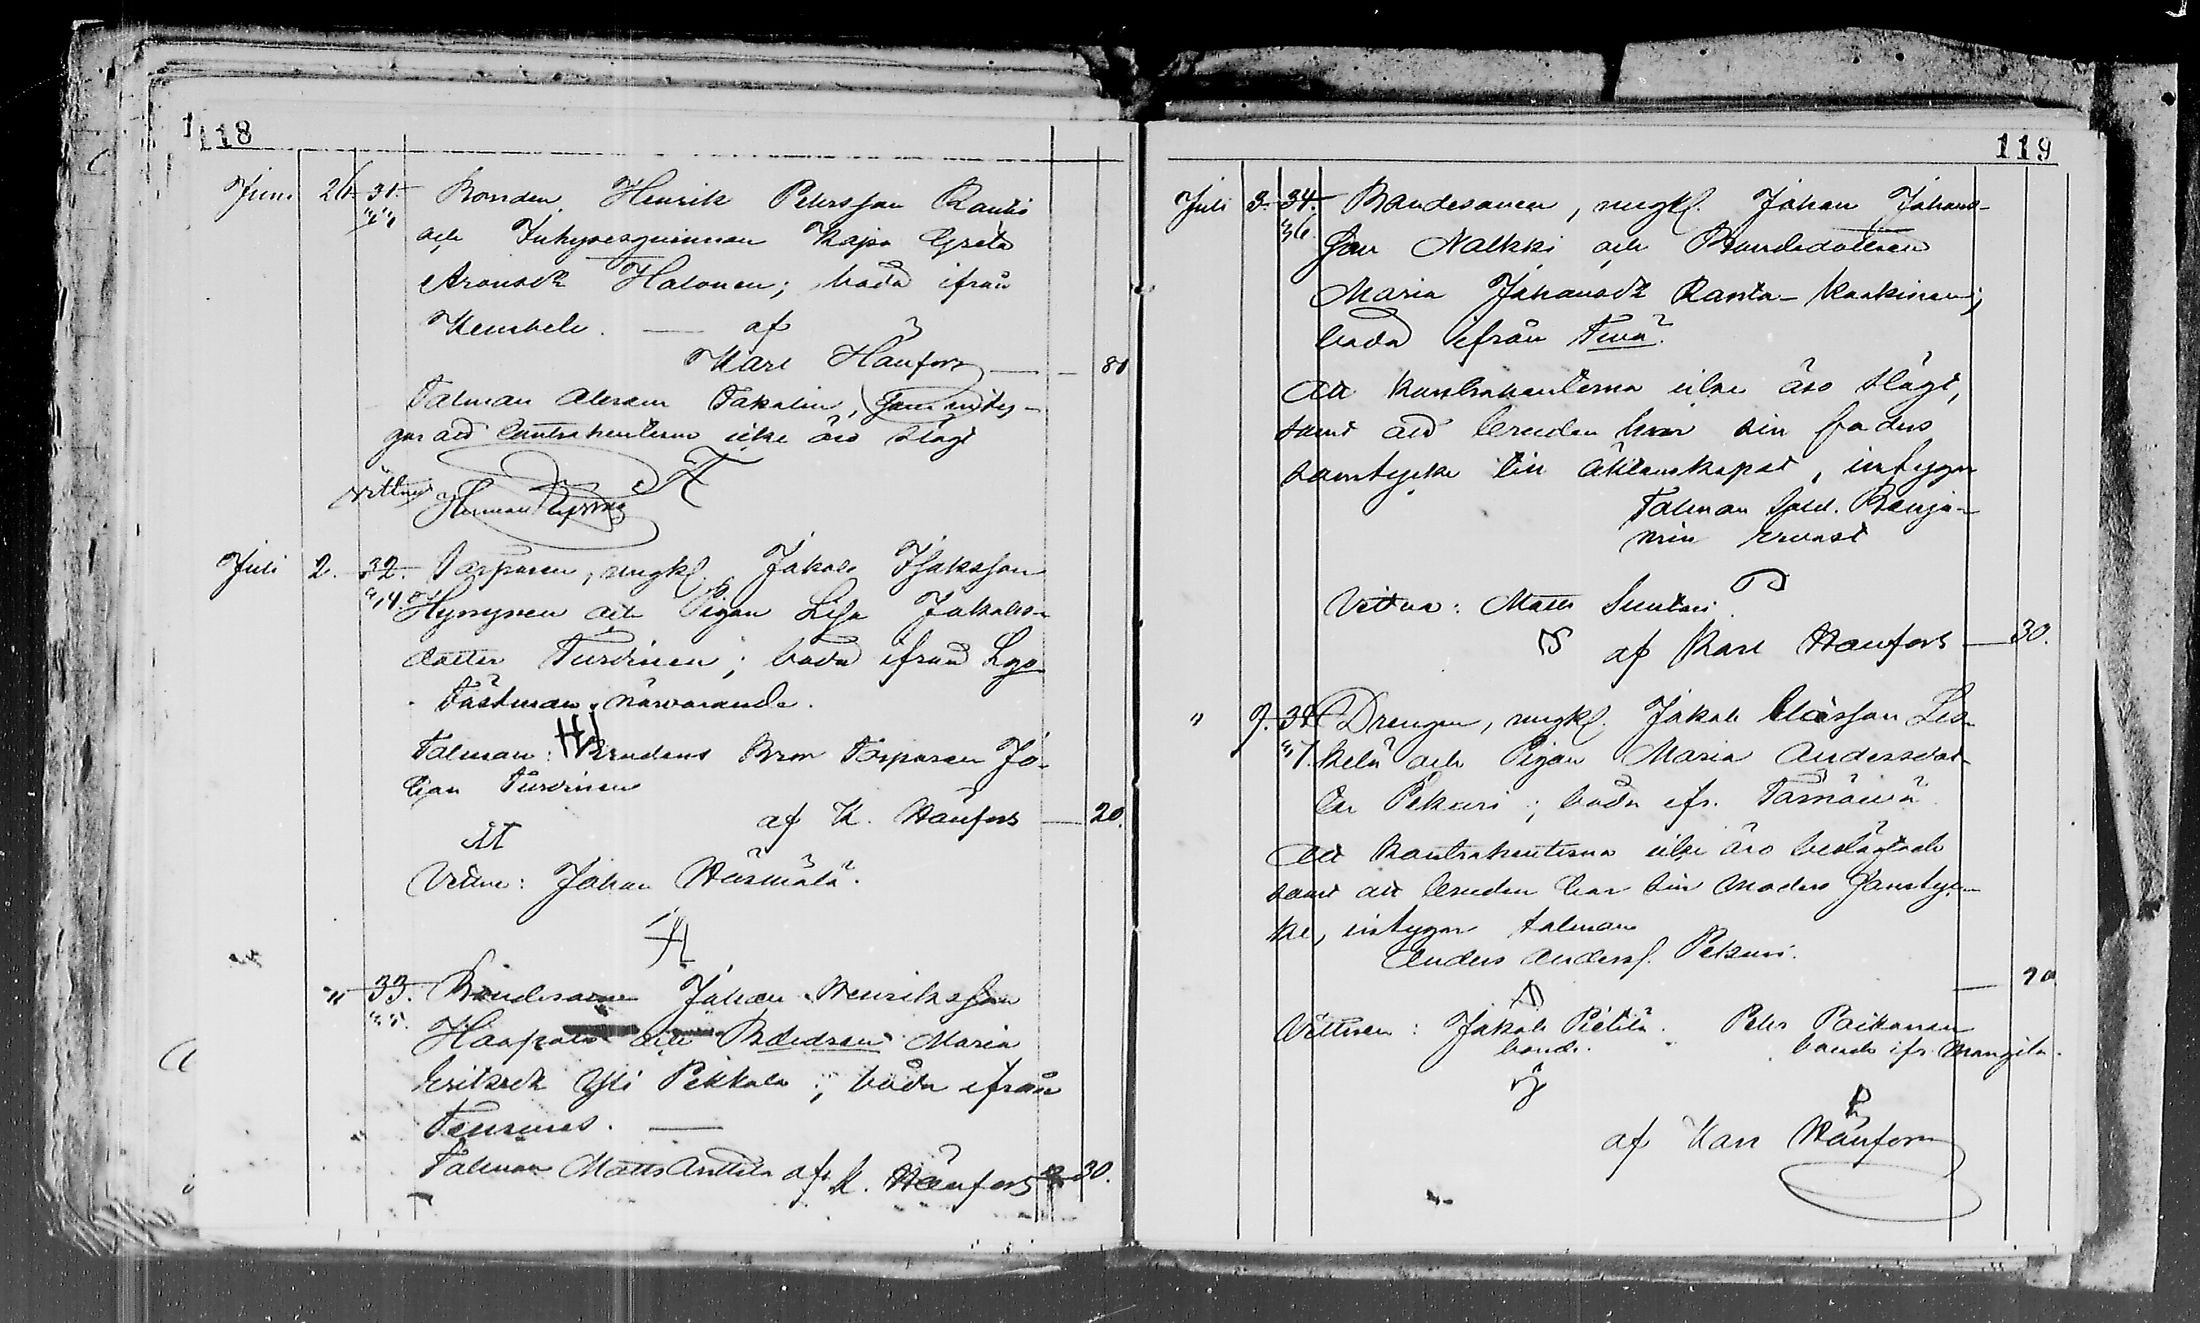 118
Juni 26. 31. Bonden Henrik Petersson Rantis
och Inhysesqvinnan Kajsa Greta
Aronsdr Halonen; båda ifrån
Kembele. — af
Karl Hänfors — 80
Talman Abram Takalin, som inty-
gar att Contrahenterne icke äro slägt
Vittne Herman
Juli 2. 32. Torparen, ungkl. Jakob Isaksson
Hyrynen och Pigan Lisa Jakobs-
dotter Turvinen; båda ifrån
Fästman närvarande.
Talman: Brudens Bror Torparen Jo-
han Turvinen
af K. Hänfors — 20.
Vittne: Johan Härmälä.
" 33. Bondesonen Johan Henriksson
Haapala och Bdedren Maria
Eriksdr Yli Pekkala; båda ifrån
Temmes. —
Talman Matts Anttila af K. Hänfors 30.
119
Juli 3. 34. Bondesonen, ungkl. Johan Johans-
son Nalkki och Bondedottren
Maria Johansdr Ranta-Kaakinen;
båda ifrån
Att Kontrahenterna icke äro slägt,
samt att bruden har sin faders
samtycke till äktenskapet, intygar
Talman Sold. Benja-
min Ervast
Vittne: Matts Suntari
af Karl Hänfors — 30.
" 9. Drengen, ungkl. Jakob Claesson Les-
kelä och Pigan Maria Andersdot-
ter Pekuri; båda ifr. Tarnäwä
Att Kontrahenterna icke äro beslägtade
samt att bruden har sin Moders Samtyc-
ke, intygar talman
Anders Anderss. Pekuri.
— 20
Vittnen: Jakob Pietilä. Peter Paikonen
bonde. bonde ifr. Mangila.
af Karl Hänfors